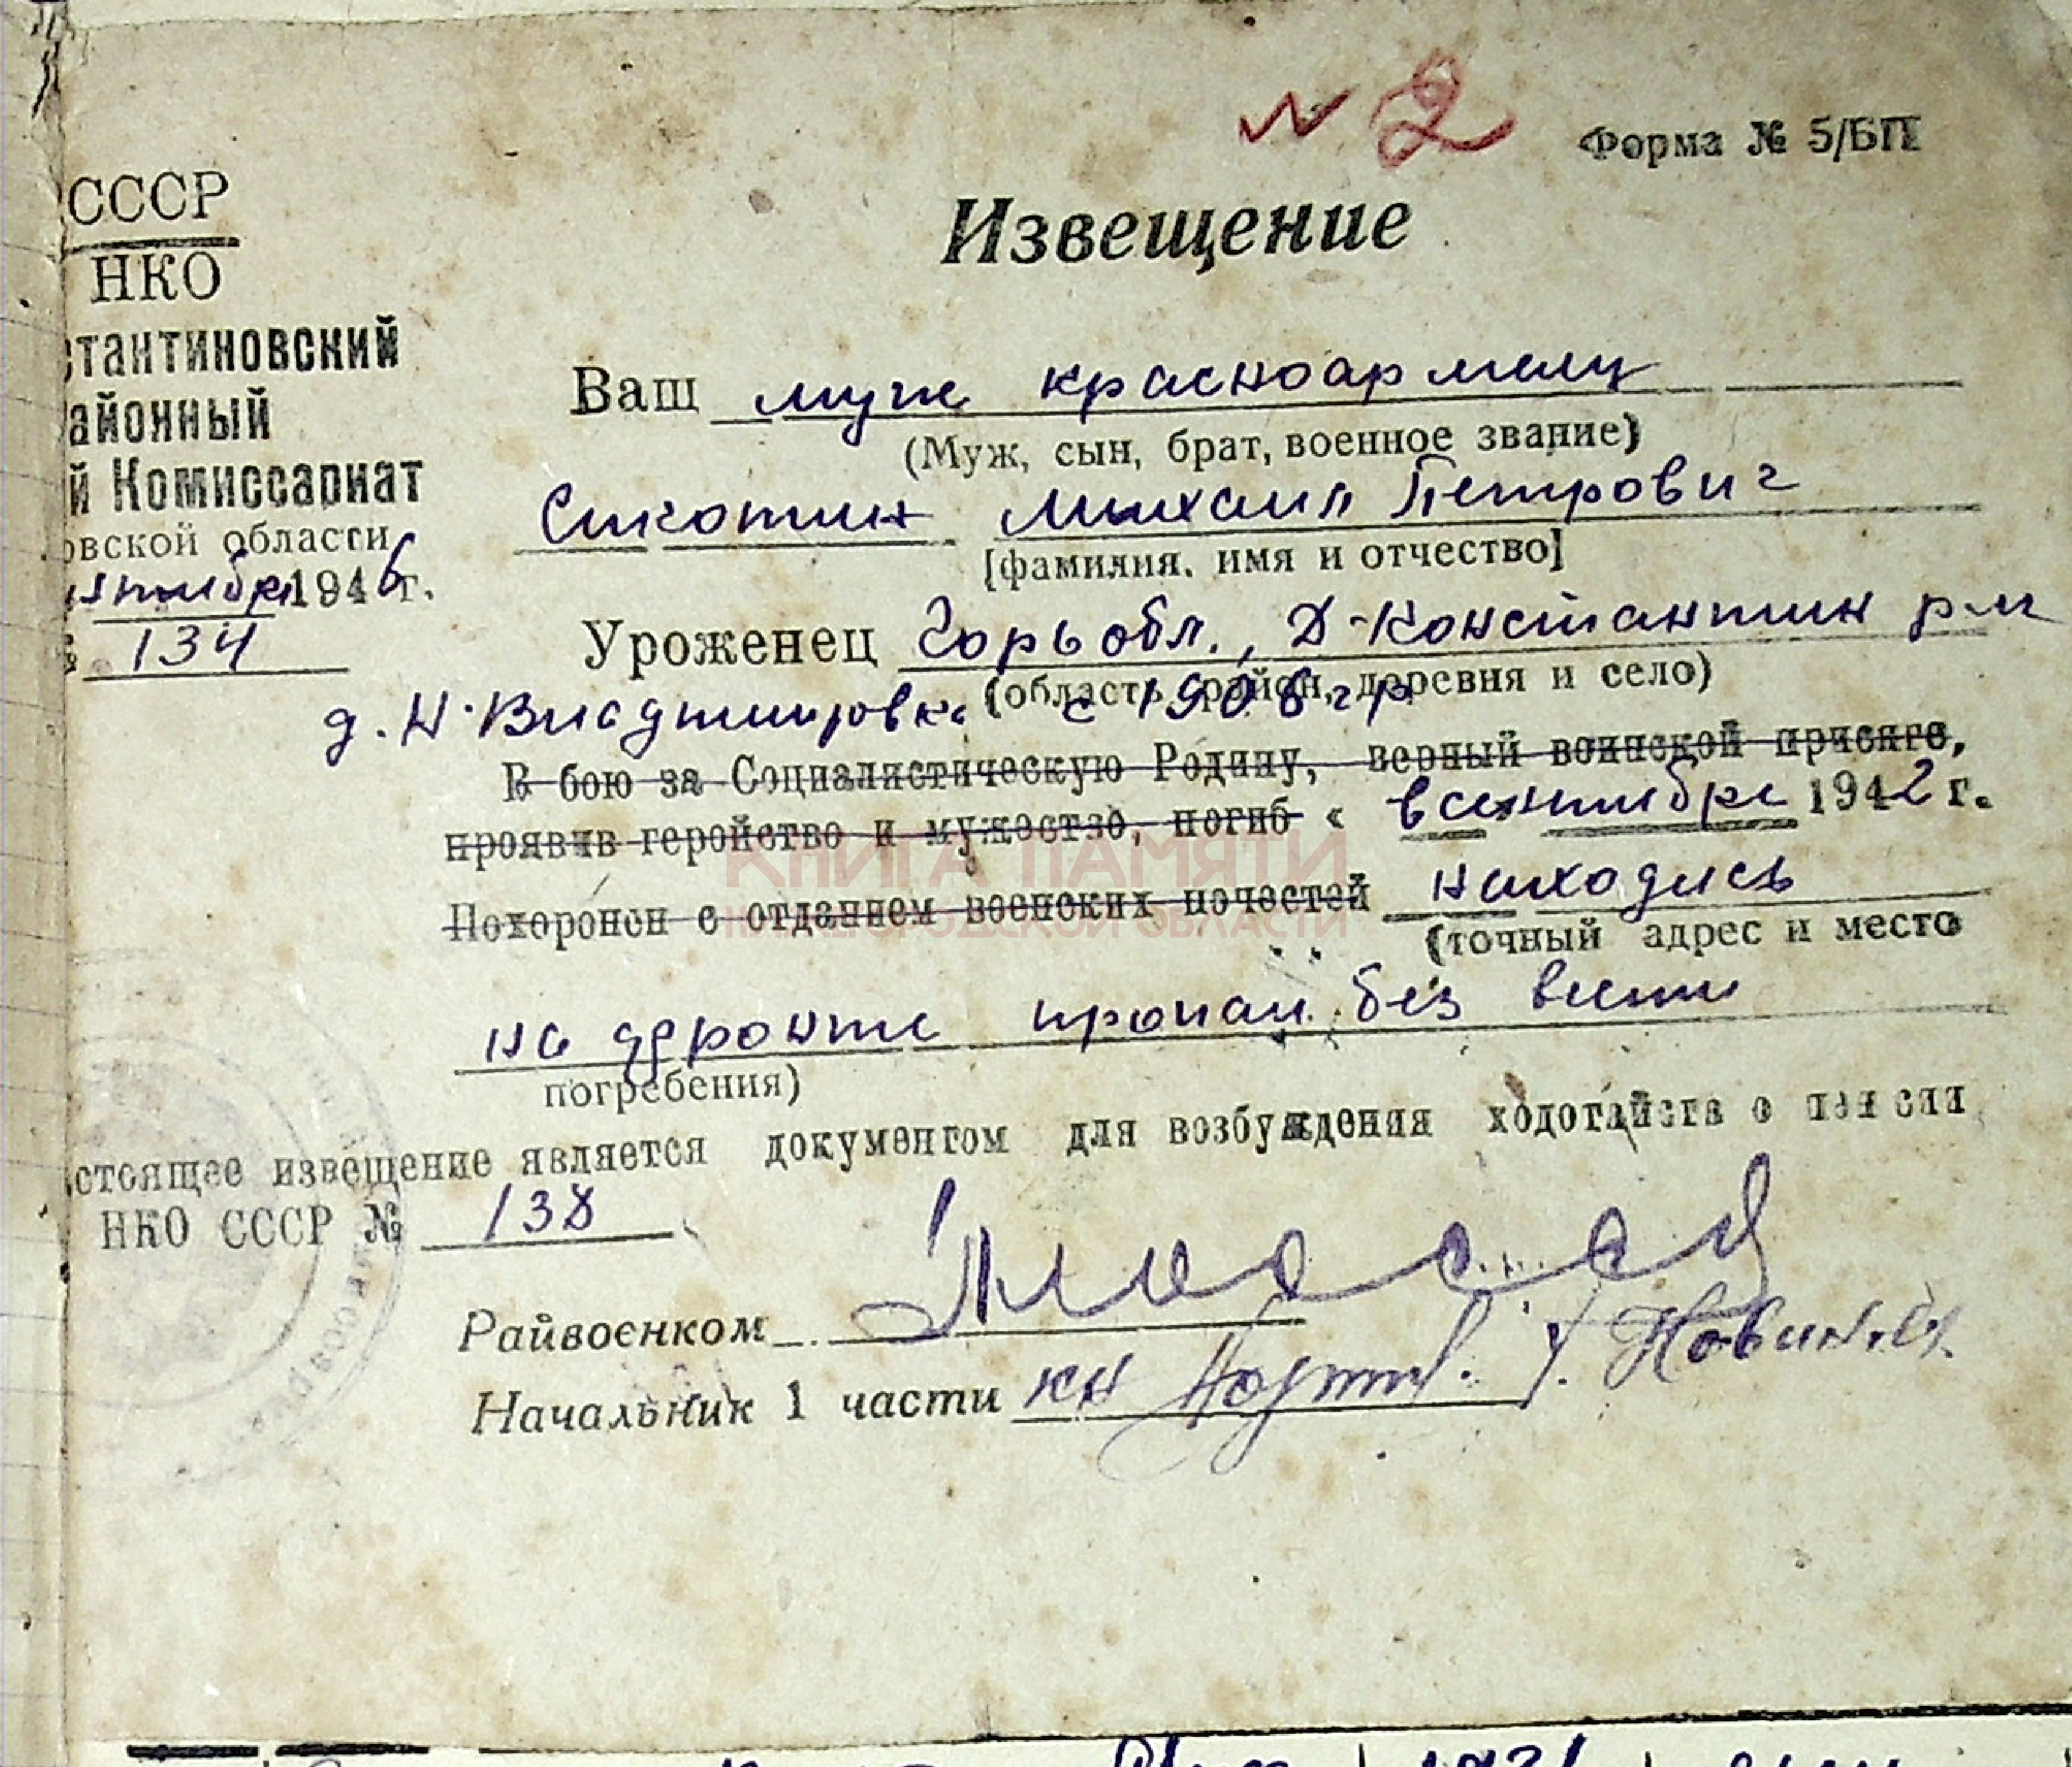 N 2
Форма № 5/БП
СССР
НКО
стантиновский
айонный
й Комиссариат
овской области
нтября 1946 г.
134
Извещение
Ваш муж красноармеец
(Муж, сын, брат, военное звание)
Сикотин Михаил Петрович
[фамилия, имя и отчество]
Уроженец Горьобл., Д-Константин р-н
(область, район, деревня и село)
д. Н. Владимировка с 1906 г р
В бою за Социалистическую Родину, верный воинской присяге,
проявив геройство и мужество, погиб « в сентябре 1942 г.
Похоронен с отданием воєнских почестей находясь
(точный адрес и место
на фронте пропал без вести
погребения)
стоящее извещение является документом для возбуждения ходотайства о пенсии
НКО СССР № 138
Райвоєнком
Начальник 1 части
КНИГА ПАМЯТИ
НИЖЕГОРОДСКОЙ ОБЛАСТИ